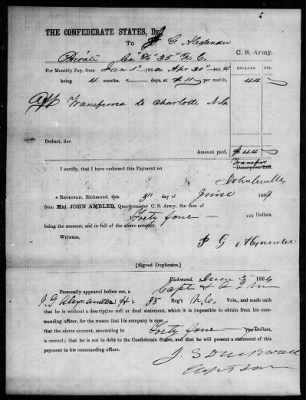 THE CONFEDERATE STATES, Dr.
To J G Alexander
Private Co "H" 35" N. C. C. S. Army.
For Monthly Pay, from Jan 1st 1864 to Apr 30" 1864
being 4 months days, at $11 per month, 44
Transferred to Charlotte N.C.
Deduct, due
Amount paid, $44
Transfer
I certify, that I have endorsed this Payment on
RECEIVED, Richmond, the 3d day of June 1864
from Maj. JOHN AMBLER, Quartermaster C. S. Army, the sum of
Forty four Dollars,
being the amount, and in full of the above account.
WITNESS,
J G Alexander
[Signed Duplicates.]
Richmond, June 3d 1864
Personally appeared before me, Capt
J. G. Alexander H. 35 Reg't N.C. Vols., and made oath
that he is without a descriptive roll or final statement, which it is impossible to obtain from his com-
manding officer, for the reason his company is now
that the above account, amounting to Forty four Dollars,
is correct; that he is not in debt to the Confederate States, and that he will present a statement of
this payment to his commanding officer.